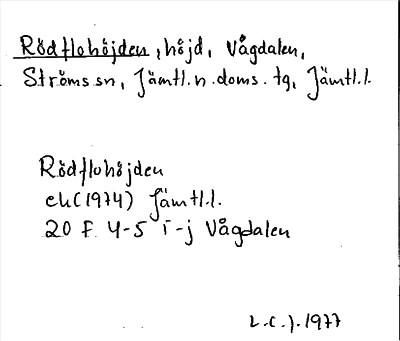 Rödflohöjden, höjd, Vågdalen,
Ströms sn, Jämtl. n. doms. tg, Jämtl.l.
Rödflohöjden
ek(1974) Jämtl.l.
20 F 4-5 i-j Vågdalen
L.C.J. 1977